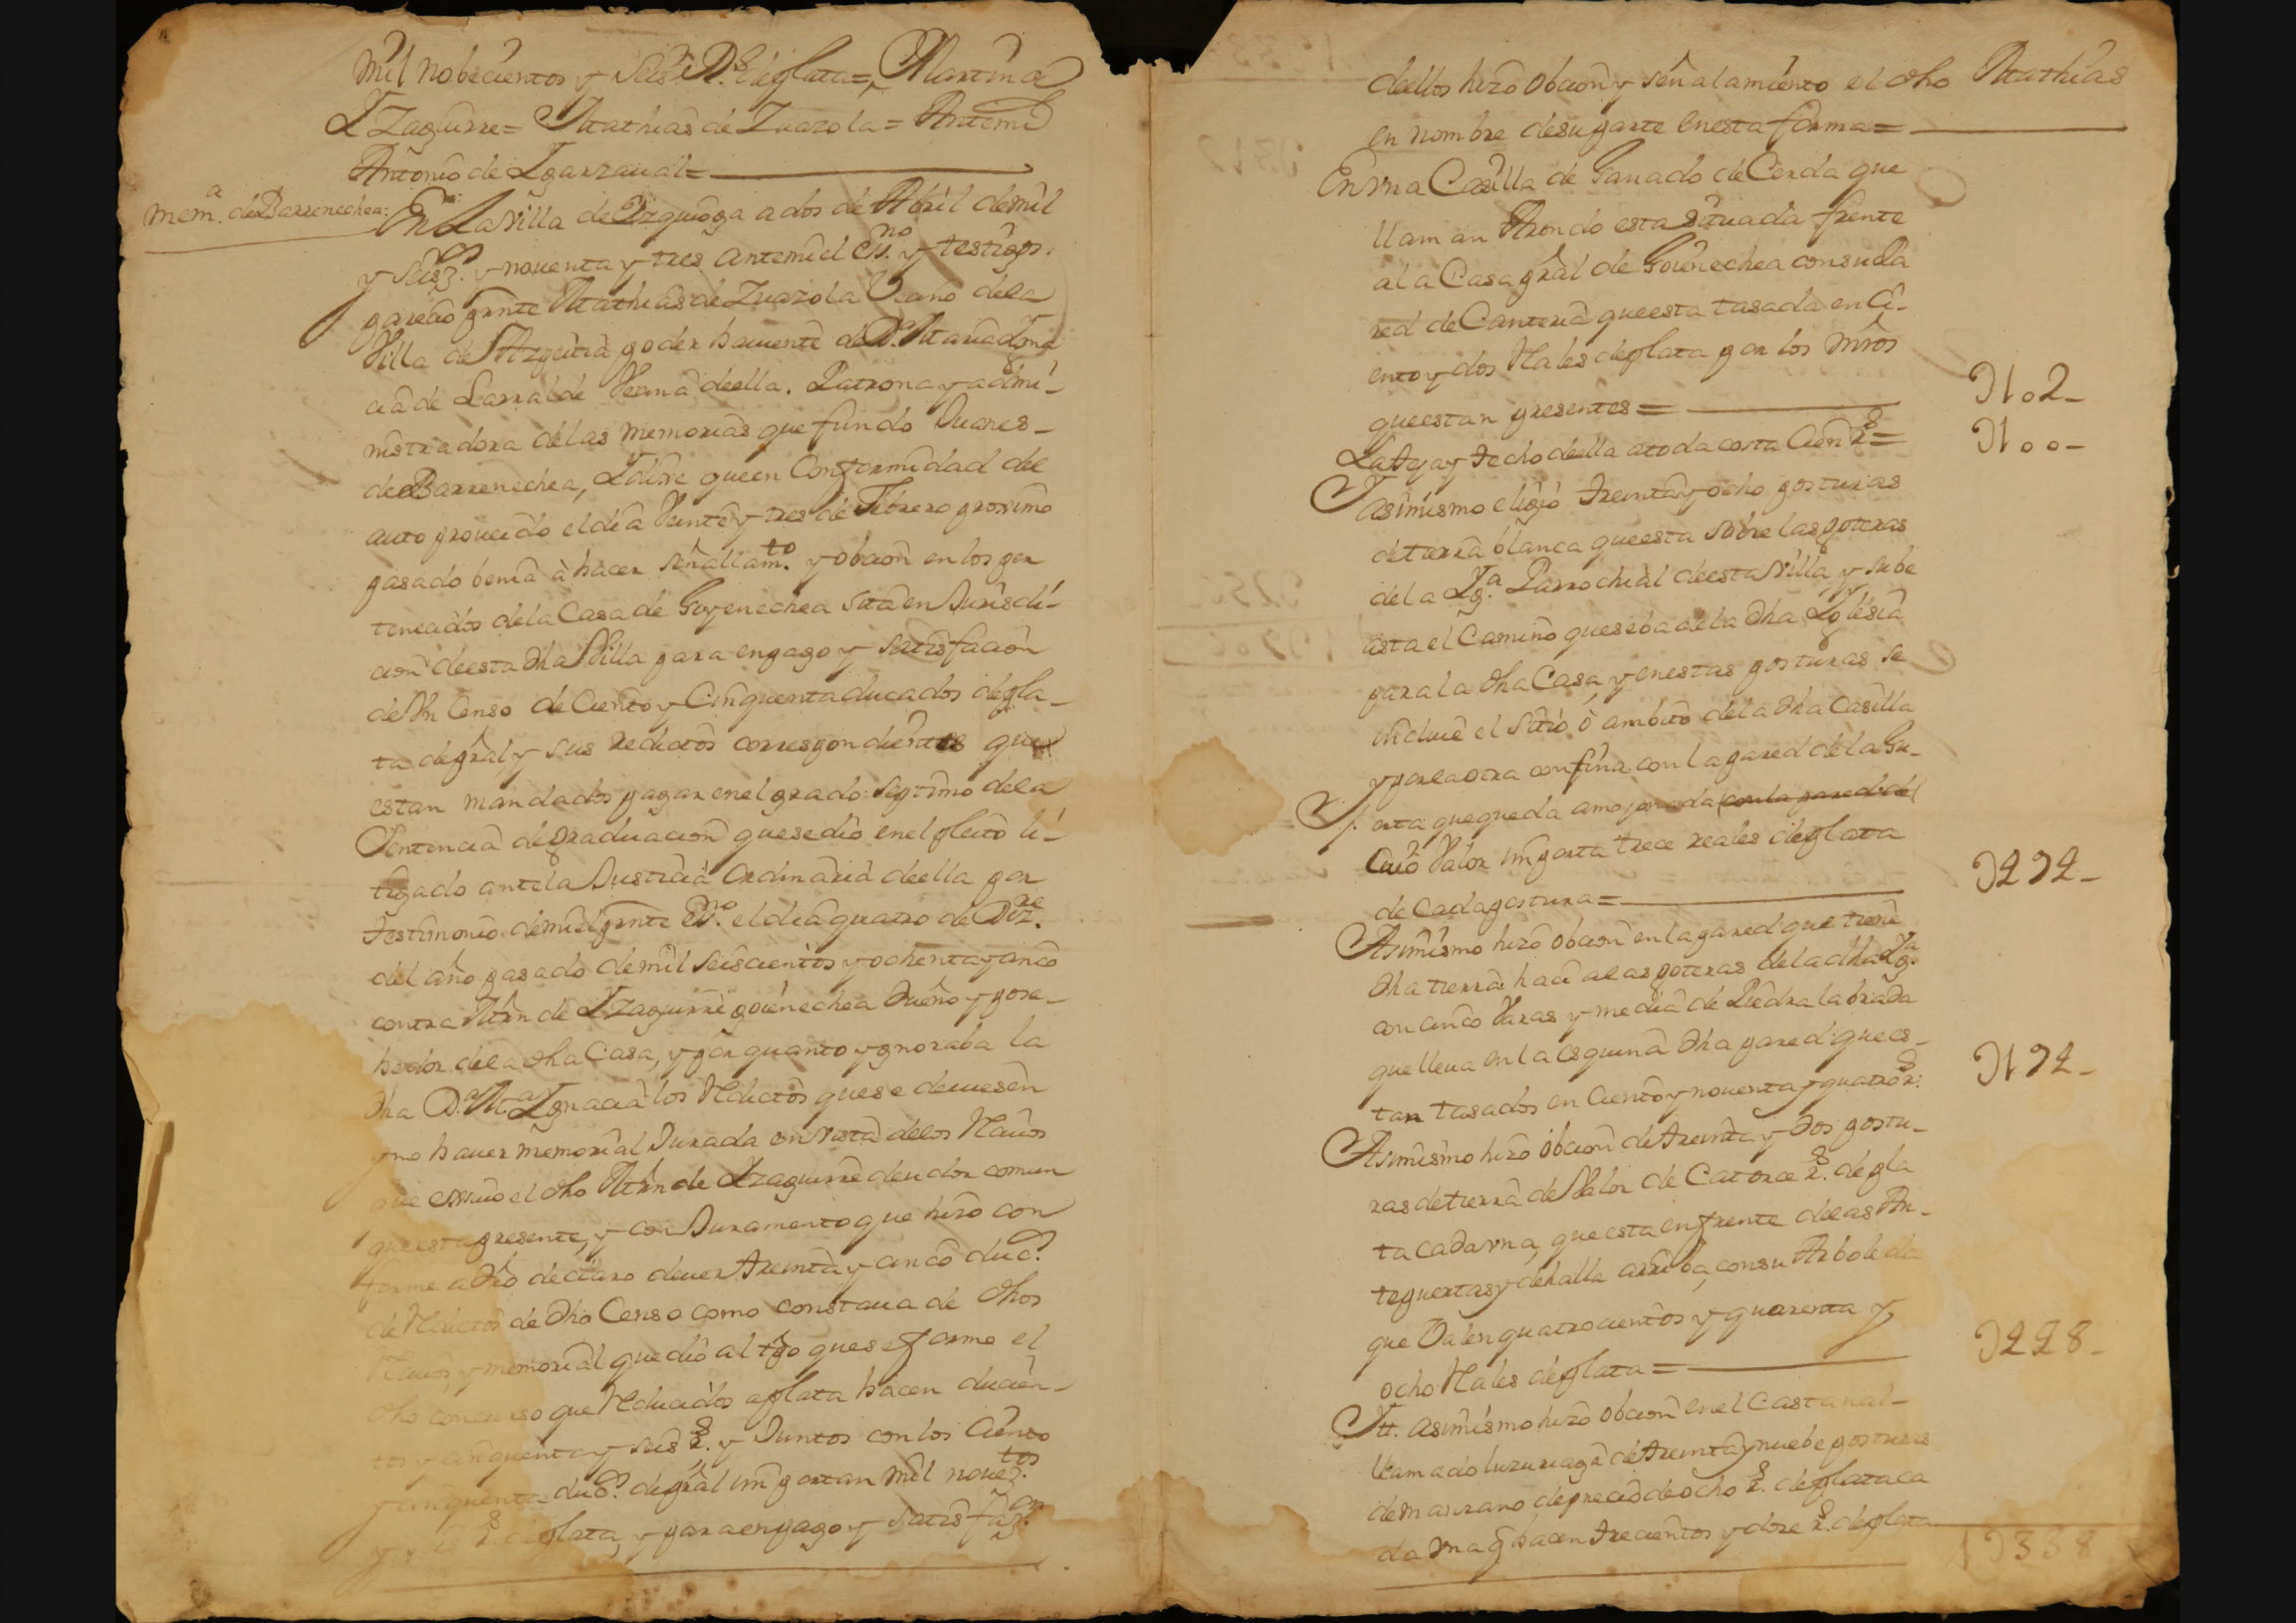 mil nobecientos y seis R.s de plata = Martin de
Yzaguirre = Mathias de Zuazola = Antemi
Antonio de Ygarzaual =
Mem.a de Barrenechea:
En La Villa de Ezquioga a dos de Abril de mil
y seisz.s y nouenta y tres antemi el es.no y testigos.
parecio presnte Mathias de Zuazola Vecino de la
Villa de Azpeitia poder hauiente de D.a Maria Ygna
cia de Larralde Vecina de ella. Patrona y admi-
nistradora de las memorias que fundo Juanes
de Barrenechea, Y dixo que en Conformidad del
auto proueido el dia Veinte y tres de Febrero proximo
pasado benia à hacer señallam.to y obcion en los per
tenecidos de la Casa de Goyenechea sita en Jurisdi-
cion de esta dha Villa para en pago y satisfacion
de Vn Censo de Ciento y Cinquenta ducados de pla-
ta de pral, y sus reditos correspondientes que
estan mandados pagar en el grado septimo de la
Sentencia de graduacion que se dio en el pleito li-
tigado ante la Justicia Ordinaria de ella por
testimonio de mi el presnte es.no el dia quatro de Diz.re
del año pasado de mil seiscientos y ochenta y cinco
contra Mrn de Yzaguirre goienechea Dueño y pose-
hedor de la dha Casa, y por quanto ygnoraba la
dha D.a M.a Ygnacia los Reditos que se deuiesen
y no hauer memorial Jurada en vista de los Reciuos
que exsiuio el dho Mrn de Yzaguirre deudor comun
que esta presente, y con Juramento que hizo con
forme a dro declaro deuer treinta y cinco duc.s
de Reditos de dho Censo como constaua de dhos
Reciuos, y memorial que dio al tpo que se formo el
dho concurso que Reducidos a plata hacen ducien-
tos y cinquenta y seis r.s y Juntos con los Ciento
y cinquenta duc.s de pral importan mil nouez.tos
y seis r.s de plata, y para en pago y satisfaz.on
de ellos hizo obcion y señalamiento el dho Mathias
en nombre de su parte en esta forma =
En vna Casilla de Ganado de Cerda que
llaman Arondo esta situada frente
a la Casa pral de Goienechea con su Pa
red de Canteria que esta tasada en Ci-
ento y dos Reales de plata por los mros
que estan presentes = U102-
La teja y techo de ella a toda costa Cien r.s = U100-
Y asimismo eligio treinta y ocho posturas
de tierra blanca que esta sobre las goteras
de la Yg.a Parrochial de esta Villa y sube
asta el Camino que se ba de la dha Yglesia
para la dha Casa, y en estas posturas se
incluie el sitio ò ambito de la dha Casilla
y por la otra confina con la pared de la Gu-
erta que queda amojonada (con la pared de)
Cuio Valor importa trece reales de plata
de Cada postura = U494-
Asimismo hizo obcion en la pared que tiene
dha tierra hacia las goteras de la dha Yg.a
con cinco Varas y media de Piedra labrada
que lleua en la esquina dha pared que es-
tan tasados en Ciento y nouenta y quatro r.s U194-
Asimismo hizo obcion de treinta y dos postu-
ras de tierra de Valor de Catorce r.s de pla
ta cada vna, que esta enfrente de las An-
tepuertas y de halla arriba, con su Arboleda
que Valen quatrocientos y quarenta y
ocho Reales de plata = U448-
Yt. asimismo hizo obcion en el Castañal
llamado luzuriaga de treinta y nuebe posturas
de manzano de precio de ocho r.s de plata ca
da vna q hacen trecientos y doze r.s de plata
1U338